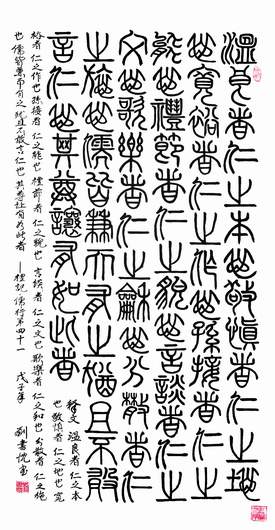 溫良者仁之本也敬慎者仁之地
也寬裕者仁之作也孫接者仁之
能也禮節者仁之貌也言談者仁之
文也歌樂者仁之和也分散者仁
之施也儒皆兼而有之猶且不敢
言仁也其尊讓有如此者
釋文 溫良者 仁之本
也 敬慎者 仁之地也 寬
裕者 仁之作也 孫接者 仁之能也 禮節者 仁之貌也 言談者 仁之文也 歌樂者 仁之和也 分散者 仁之施
也 儒皆兼而有之 猶且不敢言仁也 其尊讓有如此者 ——禮記·儒行第四十一 戊子年 劉書忱書